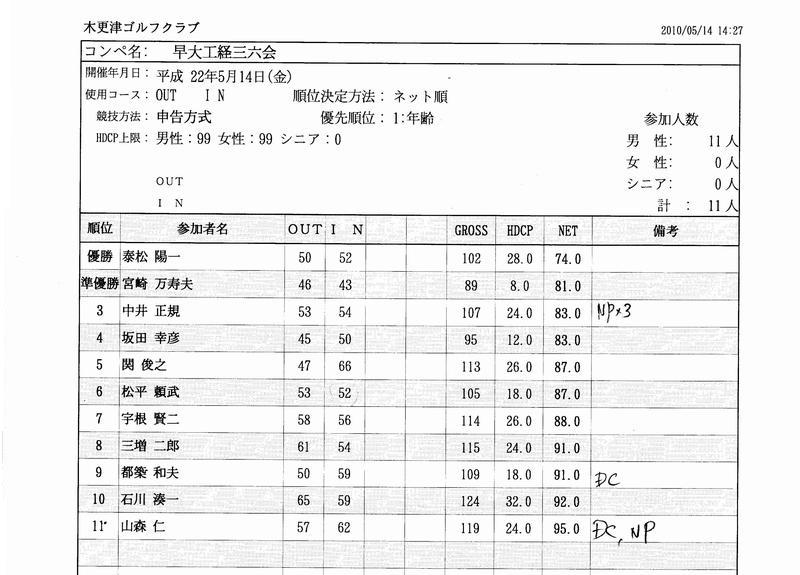 木更津ゴルフクラブ 2010/05/14 14:27
コンペ名： 早大工経三六会
開催年月日： 平成 22年5月14日(金)
使用コース： OUT IN 順位決定方法： ネット順
競技方法： 申告方式 優先順位： 1:年齢
参加人数
HDCP上限： 男性：99 女性：99 シニア：0
男 性： 11人
女 性： 0人
シニア： 0人
OUT
IN
計 ： 11人
順位 参加者名 OUT IN GROSS HDCP NET 備考
優勝 泰松 陽一 50 52 102 28.0 74.0
準優勝 宮崎 万寿夫 46 43 89 8.0 81.0
3 中井 正規 53 54 107 24.0 83.0 NP×3
4 坂田 幸彦 45 50 95 12.0 83.0
5 関 俊之 47 66 113 26.0 87.0
6 松平 頼武 53 52 105 18.0 87.0
7 宇根 賢二 58 56 114 26.0 88.0
8 三増 二郎 61 54 115 24.0 91.0
9 都築 和夫 50 59 109 18.0 91.0 DC
10 石川 湊一 65 59 124 32.0 92.0
11 山森 仁 57 62 119 24.0 95.0 DC, NP